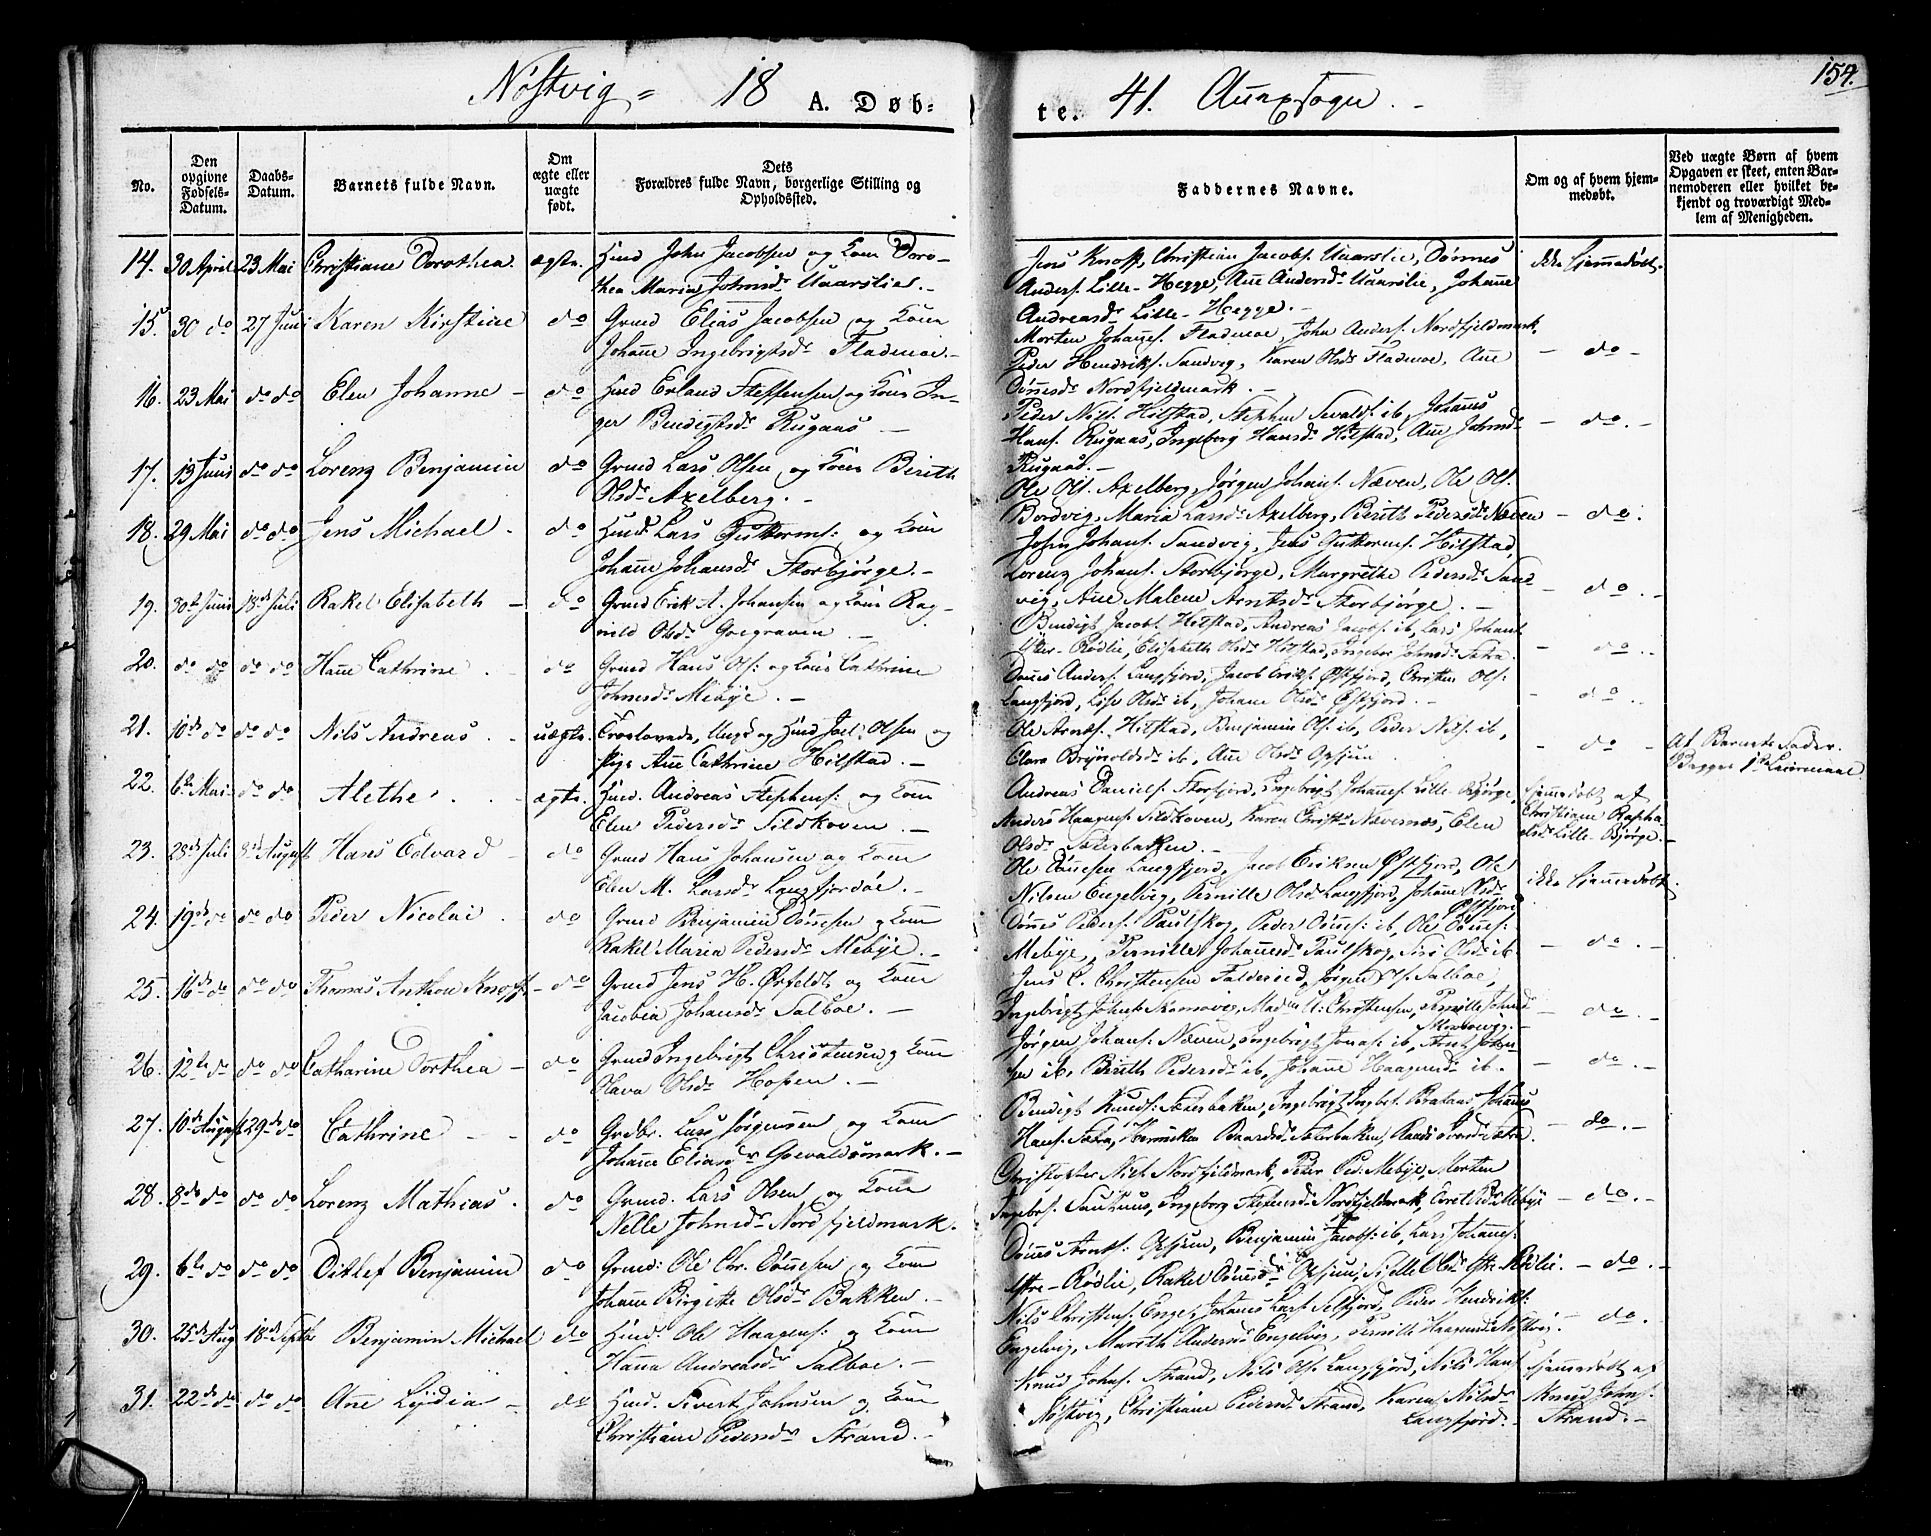 Nöstvig = 18 A. Døb-
te. 41. Annexsogn. -
154.
No.
Den opgivne Fødsels-Datum.
Daabs-Datum.
Barnets fulde Navn.
Om ægte eller uægte født.
Dets Forældres fulde Navn, borgerlige Stilling og Opholdssted.
Faddernes Navne.
Om og af hvem hjem-medøbt.
Ved uægte Børn af hvem Opgaven er skeet, enten Bar-nemoderen eller hvilket be-kjendt og troværdigt Med-lem af Menigheden.
14. 30 April 23 Mai Christiane Dorothea. ægte. Huusd John Jacobsen og Kone Doro-
thea Maria Johnsd. Aaarslie. -
Jens Knoff, Christian Jacobs. Aaarslie, Dønnes
Anders. Lille-Hegge, Ane Andersd. Aaarslie, Johanne
Andreasd. Lille-Hegge. -
ikke hjemmedøbt.
15. 30 do 27 Juni Karen Kirstine do Grmd Elias Jacobsen og Kone
Johanne Ingebrigtsd. Flademoe. -
Morten Johannes. Flademoe, John Anders. Nordfjeldmark,
Peder Hendriks. Sandvig, Karen Olsd. Flademoe, Ane
Dønnesd. Nordfjeldmark. -
- do -
16. 23 Mai do do Elen Johanne - do Hmd Erland Steffensen og Kone In-
ger Bendigtsd. Rugaas -
Peder Nils. Hilstad, Stephen Sevalds. ib, Johannes
Hans. Rugaas, Ingeborg Hansd. Hilstad, Ane Johnsd.
Rugaas. -
- do. -
17. 13 Juni do do Lorenz Benjamin do Grmd Lars Olsen og Kone Berith
Olsd. Axelberg. -
Ole Ols. Axelberg, Jørgen Johans. Næven, Ole Ols.
Bordvig, Maria Larsd. Axelberg, Berith Pedersd. Næven
- do.
18. 29 Mai do do Jens Michael. do Huusd. Lars Guttorms: og Kone
Johanne Johansd. Storbjørge. -
John Johans. Sandvig, Jens Guttorms. Hilstad,
Lorenz Johans. Storbjørge, Margrethe Pedersd. Sand-
vig, Ane Malene Arntsd. Storbjørge. -
- do. -
19. 30te Juni 18de Juli Rakel Elisabeth - do Grmd Erik A. Johansen og Kone Rag-
nild Olsd. Goegraven. -
Bendigt Jacobs. Hilstad, Andreas Jacobs. ib, Lars Johans.
Ytter-Rødlie, Elisabeth Olsd. Hilstad, Ingebor Johnsd. Sætra.
- do. -
20. do do do do Hane Cathrine. do Grmd Hans Ols: og Kone Cathrine
Johnsd. Mebye. -
Dønnes Anders. Langfjord, Jacob Eriks. Østfjord, Christen Ols.
Langfjord, Lise Olsd. ib, Johane Olsd. Østfjord. -
- do. -
21. 10de do do do Nils Andreas. - uægte. Trolovede, Ungk. og Hmd Joel Olsen og
Pige Ane Cathrine Hilstad. -
Ole Arnts. Hilstad, Benjamin Ols. ib, Peder Nils. ib,
Clara Brynoldsd. ib, Ane Olsd. Opsjøen.
- do -
Af Barnets Fader.
Begges 1ste Leiermaal
22. 6te Mai do do Alethe. - ægte. Hmd. Andreas Stephens: og Kone
Elen Pedersd. Sildhoven. -
Andreas Daniels. Storfjord, Ingebrigt Johannes. Lille-Bjørge,
Anders Haagens. Sildhoven, Karen Christd. Nævernæs, Elen
Olsd. Sæterbakken. -
hjemmedøbt af
Christiane Rapha-
elsd. Lille-Bjørge. -
23. 28de Juli 8de August Hans Edvard - do Grmd Hans Johansen og Kone
Elen M. Larsd. Langfjordøe. -
Ole Dønnesen Langfjord, Jacob Eriksen Østfjord, Ole
Nilsen Engelvig, Pernille Olsd. Langfjord, Johanne Olsd.
Østfjord
ikke hjemmedøbt.
24. 19de do do do Peder Nicolai. do Grmd Benjamin Dønnesen og Kone
Rakel Maria Pedersd. Mebye. -
Dønnes Peders. Paulskog, Peder Dønnes: ib, Ole Dønnes:
Mebye, Pernille Johannesd. Paulskog, Siri Olsd. ib.
- do. -
25. 16de do do do Thomas Anthon Knoff. - do Grmd Jens H. Ørfeldt og Kone
Jacobia Johansd. Salboe. -
Jens C. Christensen Falderied, Jørgen Ols. Salboe,
Ingebrigt Johns. Skomovig, Madme U. Christensen, Pernille Johnsd.
- do. -
26. 12te do do do Catharine Dorthea - do Grmd Ingebrigt Christensen og Kone
Olava Olsd. Hopen. -
Jørgen Johans. Næven, Ingebrigt Jonas. ib, Arnt Johan-
sen ib, Berith Pedersd. ib, Johanne Haagensd. ib.
- do. -
27. 10de August 29de do Cathrine - - do Grdbr. Lars Jørgensen og Kone
Johanne Eliasd. Goevaldsmark. -
Bendigt Knuds: Sæterbakken, Ingebrigt Ingebr. Brataas, Johannes
Hans. Sætra, Henrikken Baardsd. Sæterbakken, Randi Ivarsd. Sætra.
- do. -
28. 8de do do do Lorenz Mathias. do Grmd. Lars Olsen og Kone
Nelle Johnsd. Nordfjeldmark.
Christopher Niels. Nordfjeldmark, Peter Ped. Mebye, Morten
Ingebr. Sandnæs, Ingeborg Stephensd. Nordfjeldmark, Beret Pedsd. Mebye
- do. -
29. 6te do do do Ditlef Benjamin do Grmd: Ole Chr. Dønnesen og Kone
Johane Birgitte Olsd. Bakken. -
Dønnes Arnts: Opsjøen, Benjamin Jacobs: ib, Lars Johannes:
Yttre-Rødlie, Rakel Dønnesd. Opsjøen, Sille Olsd. Yttr-Rødlie.
- do. -
30. 25de Aug 18de Septbr Benjamin Michael do Hmd: Ole Haagens: og Kone
Hanna Andreasd. Salboe. -
Nils Christens: Enge, Johanes Lars. Selfjord, Peder Hendriks.
Engelvig, Marith Andersd. Engelvig, Pernille Haagensd. Nöstvig. -
- do.
31. 22de do do do Ane Lydia - do Hmd. Sivert Johnsen og Kone
Christiane Pedersd. Strand. -
Knud Johns. Strand, Nils Ols. Langfjord, Nils Hans.
Nöstvig, Christiane Pedersd. Strand, Karen Nilsd.
Langfjord. -
hjemmedøbt af
Knud Johns.
Strand. -